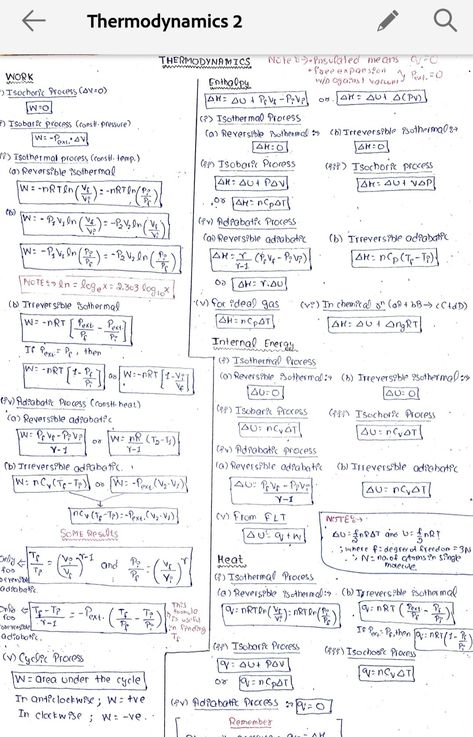 Thermodynamics 2
THERMODYNAMICS
Note :→ Insulated means q=0
• free expansion
w/o against vacuum } Pext.=0
WORK
i) Isochoric Process (ΔV=0)
W=0
ii) Isobaric process (const. pressure)
W=-Pext.ΔV
iii) Isothermal process (const. temp.)
(a) Reversible isothermal
W=-nRT ln(Vf/Vi) = -nRT ln(Pi/Pf)
(b) W=-PiVi ln(Vf/Vi) = -PfVf ln(Vf/Vi)
W=-PiVi ln(Pi/Pf) = -PfVf ln(Pi/Pf)
NOTE :→ ln = loge x = 2.303 log10 x
(b) Irreversible isothermal
W=-nRT [Pext/Pf - Pext/Pi]
If Pext = Pf, then
W=-nRT [1-Pf/Pi] or W=-nRT [1-Vi/Vf]
(iv) Adiabatic Process (const. heat)
(a) Reversible adiabatic
W= PfVf-PiVi/γ-1 or W= nR/γ-1 (T2-T1)
(b) Irreversible adiabatic.
W= nCv(Tf-Ti) or W=-Pext.(V2-V1)
nCv(Tf-Ti)=-Pext.(V2-V1)
SOME Results
only for reversible adiabatic.
Tf/Ti = (Vi/Vf)^γ-1 and Pf/Pi = (Vi/Vf)^γ
only for irreversible adiabatic.
Tf-Ti/γ-1 = -Pext. (Tf/Pf - Ti/Pi)
This formula is useful in finding Tf
(v) Cyclic Process
W= area under the cycle
In anticlockwise ; W= +ve
In clockwise ; W= -ve.
Enthalpy
ΔH = ΔU + PfVf-PiVi or ΔH = ΔU + Δ(PV)
(i) Isothermal Process
(a) Reversible isothermal :→ (b) Irreversible isothermal :→
ΔH=0 ΔH=0
(ii) Isobaric Process (iii) Isochoric process
ΔH = ΔU + PΔV ΔH = ΔU + VΔP
or ΔH = nCpΔT
(iv) Adiabatic Process
(a) Reversible adiabatic (b) Irreversible adiabatic
ΔH = γ/γ-1 (PfVf-PiVi) ΔH = nCp(Tf-Ti)
or ΔH = γ.ΔU
(v) for ideal gas (vi) In chemical rxn (aA + bB → cC+dD)
ΔH = nCpΔT ΔH = ΔU + ΔngRT
Internal Energy
(i) Isothermal Process
(a) Reversible isothermal :→ (b) Irreversible isothermal :→
ΔU=0 ΔU=0
(ii) Isobaric Process (iii) Isochoric Process
ΔU = nCvΔT ΔU = nCvΔT
(iv) Adiabatic process
(a) Reversible adiabatic (b) Irreversible adiabatic
ΔU = PfVf-PiVi/γ-1 ΔU = nCvΔT
(v) From FLT
ΔU = q+w
NOTE :→
ΔU = f/2 nRΔT and U = f/2 nRT
; where f: degree of freedom = 3N
; N = no. of atoms in single molecule.
Heat
(i) Isothermal Process
(a) Reversible isothermal :→ (b) Irreversible isothermal
q=nRT ln(Vf/Vi) = nRT ln(Pi/Pf) q=nRT (Pext/Pf - Pext/Pi)
If Pext = Pf, then q=nRT(1-Pf/Pi)
(ii) Isobaric Process (iii) Isochoric Process
q= ΔU + PΔV q= nCvΔT
or q= nCpΔT
(iv) Adiabatic Process :→ q=0
Remember